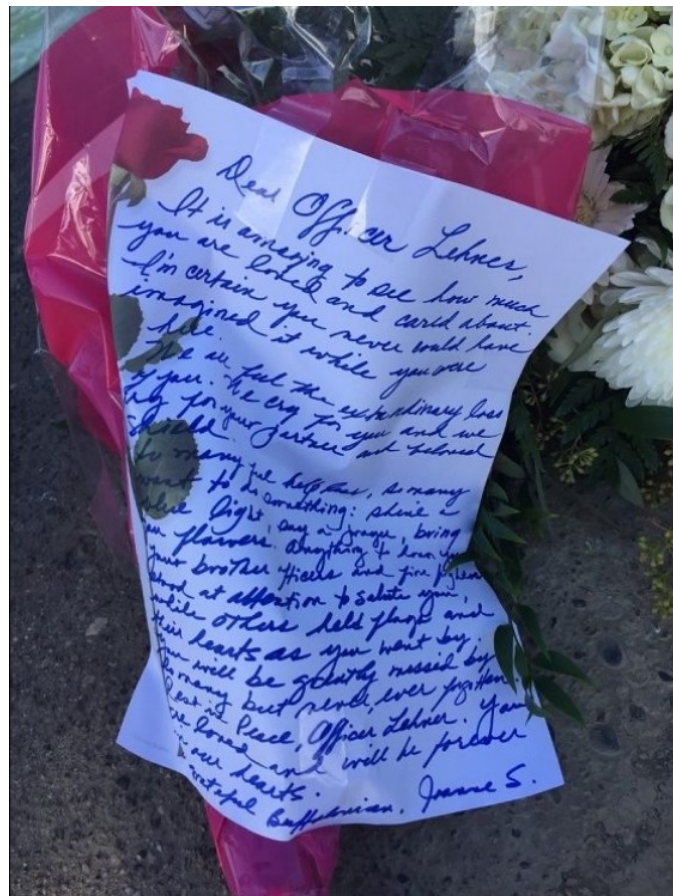 Dear Officer Lehner,
It is amazing to see how much
you are loved and cared about.
I'm certain you never would have
imagined it while you were
here.
We all feel the extraordinary loss
of you. We cry for you and we
cry for your partner and beloved
Shield.
So many feel helpless, so many
want to do something: shine a
blue light, say a prayer, bring
you flowers. Anything to honor you
Your brother officers and fire fighters
stood at attention to salute you,
while others held flags and
their hearts as you went by.
You will be greatly missed by
so many but never, ever forgotten.
Rest in Peace, Officer Lehner. You
are loved and will be forever
in our hearts.
A grateful Buffalonian, Joanne S.